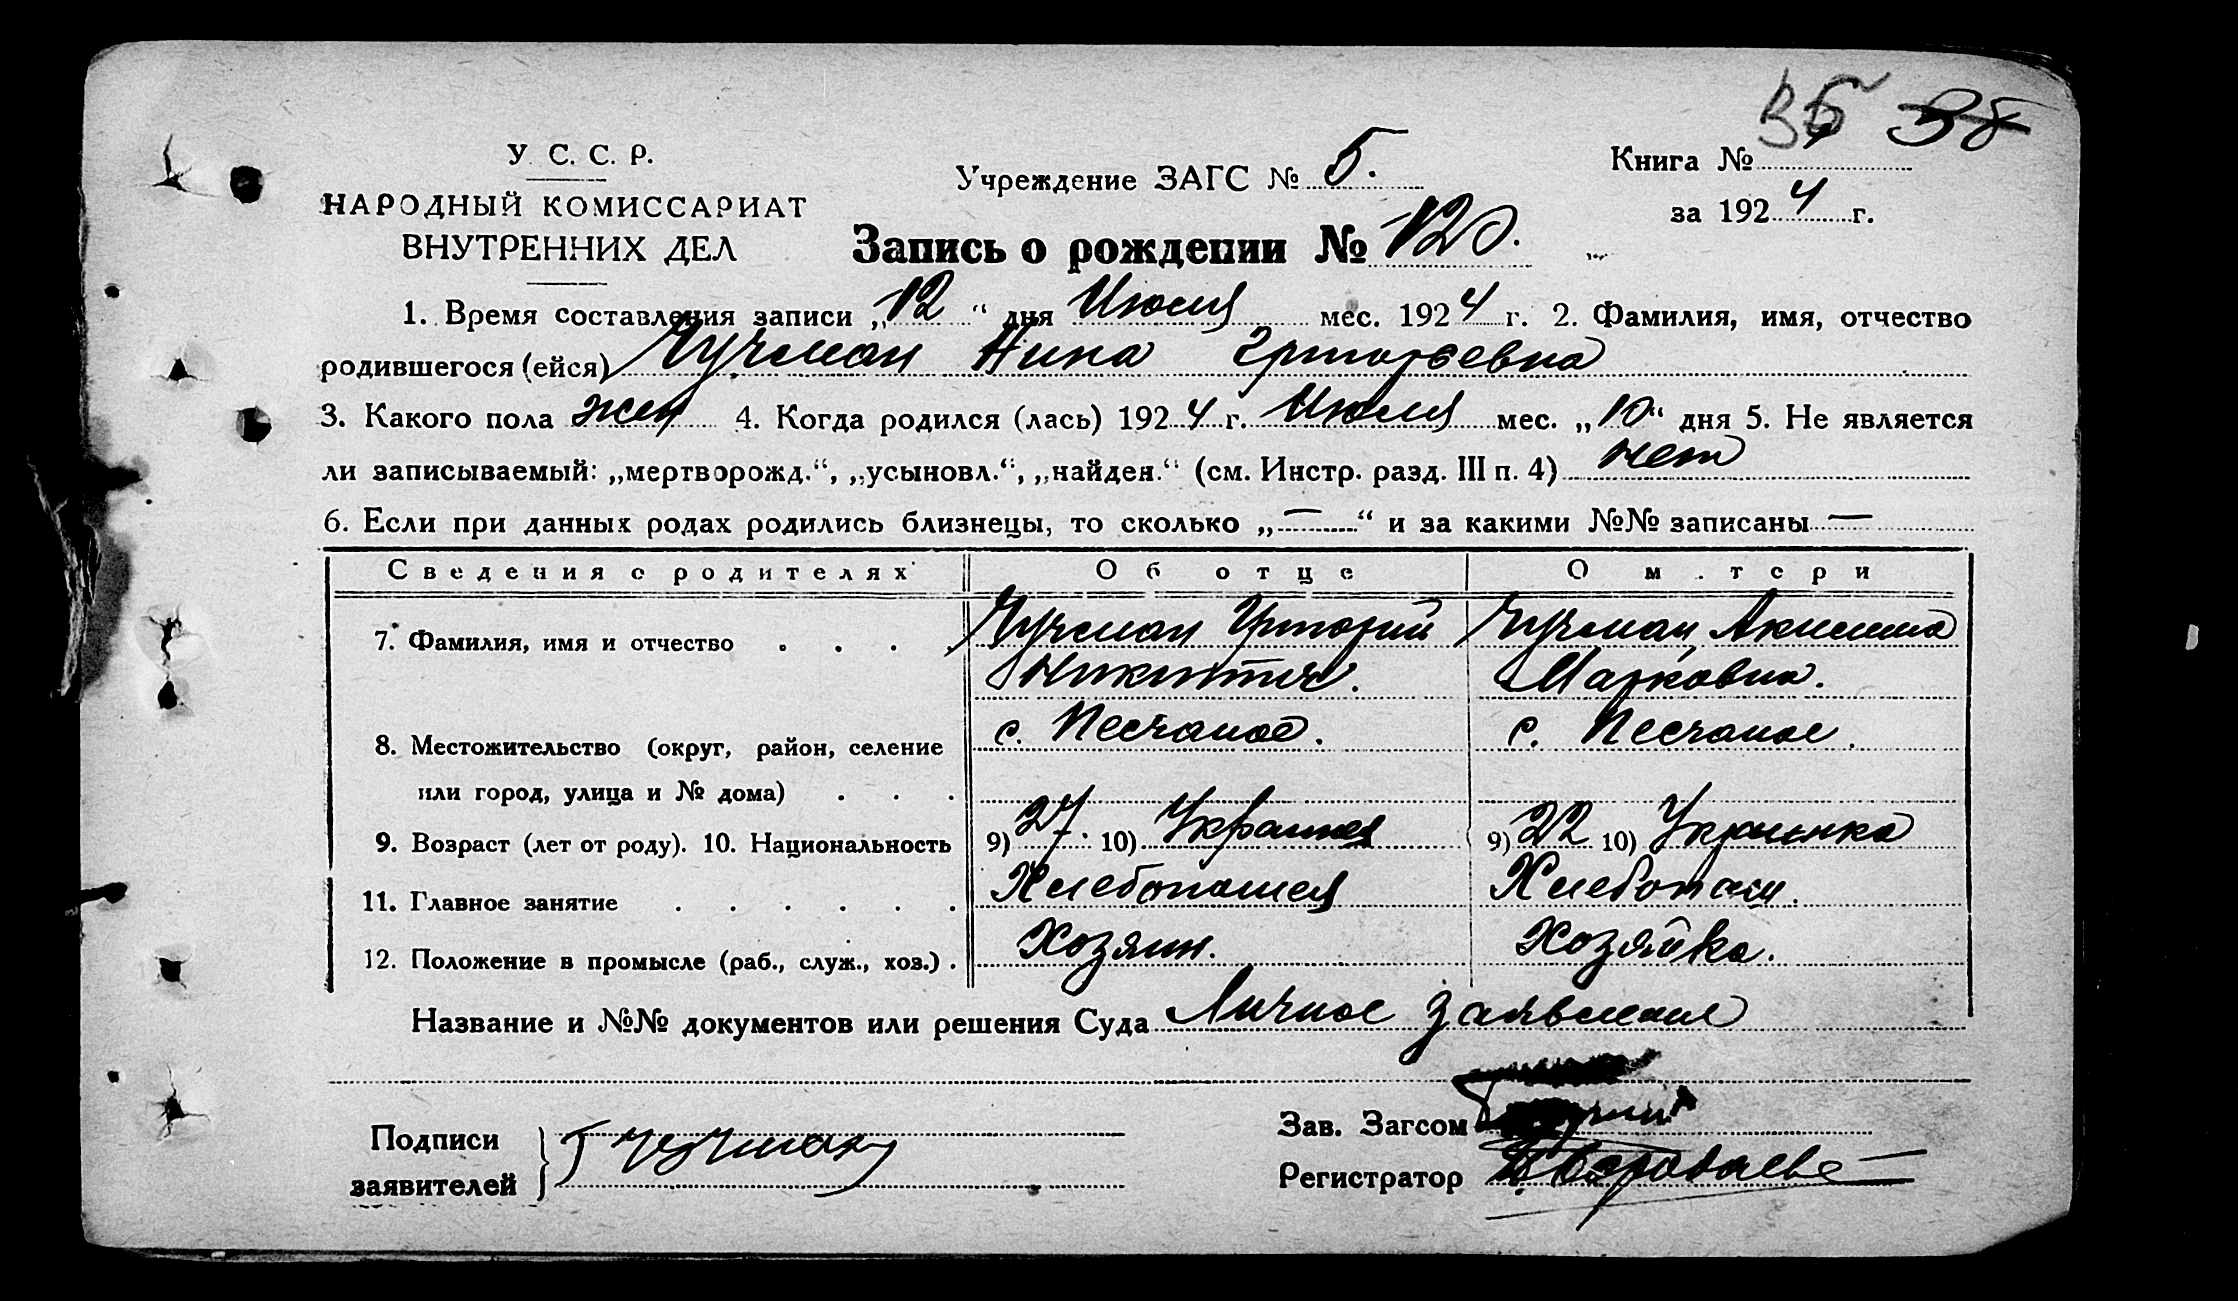 36 38
У. С. С. Р.
НАРОДНЫЙ КОМИССАРИАТ
ВНУТРЕННИХ ДЕЛ
Учреждение ЗАГС № 5.
Книга №
за 1924 г.
Запись о рождении № 120.
1. Время составления записи „12“ дня Июля мес. 1924 г. 2. Фамилия, имя, отчество
родившегося (ейся) Чучман Нина Григорьевна
3. Какого пола жен 4. Когда родился (лась) 1924 г. Июля мес. „10“ дня 5. Не является
ли записываемый: „мертворожд.“, „усыновл.“, „найден.“ (см. Инстр. разд. III п. 4) нет
6. Если при данных родах родились близнецы, то сколько „—“ и за какими №№ записаны —
Сведения о родителях Об отце О м.тери
7. Фамилия, имя и отчество . . . . Чучман Григорий Чучман
Никитич. Марковна.
8. Местожительство (округ, район, селение с. Песчаное. с. Песчаное.
или город, улица и № дома) . . .
9. Возраст (лет от роду). 10. Национальность 9) 27. 10) Украинец 9) 22 10) Украинка
11. Главное занятие . . . . . . Хлебопашец Хлебопаш.
12. Положение в промысле (раб., служ., хоз.) . Хозяин. Хозяйка.
Название и №№ документов или решения Суда Личное заявление
Подписи
заявителей
Г Чучман
Зав. Загсом
Регистратор